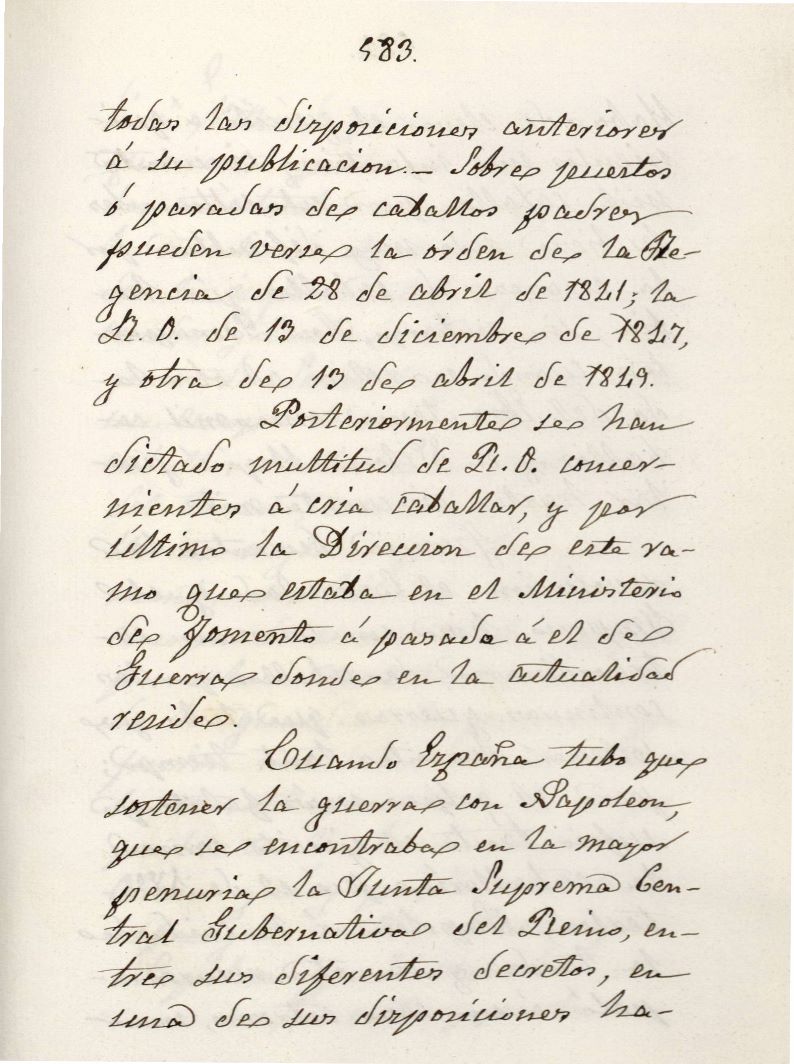 583.
todas las disposiciones anteriores
á su publicacion.- Sobre puestos
ó paradas de caballos padres
pueden verse la órden de la Re-
gencia de 28 de abril de 1841; la
R. O. de 13 de diciembre de 1847,
y otra de 13 de abril de 1849.
Posteriormente se han
dictado multitud de R. O. conser-
nientes á cria caballar, y por
último la Direccion de este ra-
mo que estaba en el Ministerio
de Fomento á pasado á el de
Guerra donde en la actualidad
reside.
Cuando España tubo que
sostener la guerra con Napoleon,
que se encontraba en la mayor
penuria la Junta Suprema Cen-
tral Gubernativa del Reino, en-
tre sus diferentes decretos, en
una de sus disposiciones ha-